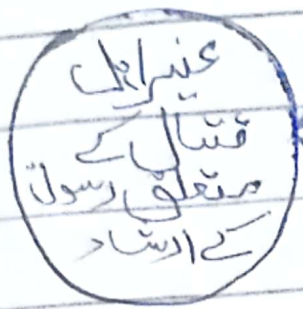 غیر اہل
قتال کے
متعلق رسولؐ
کے ارشاد